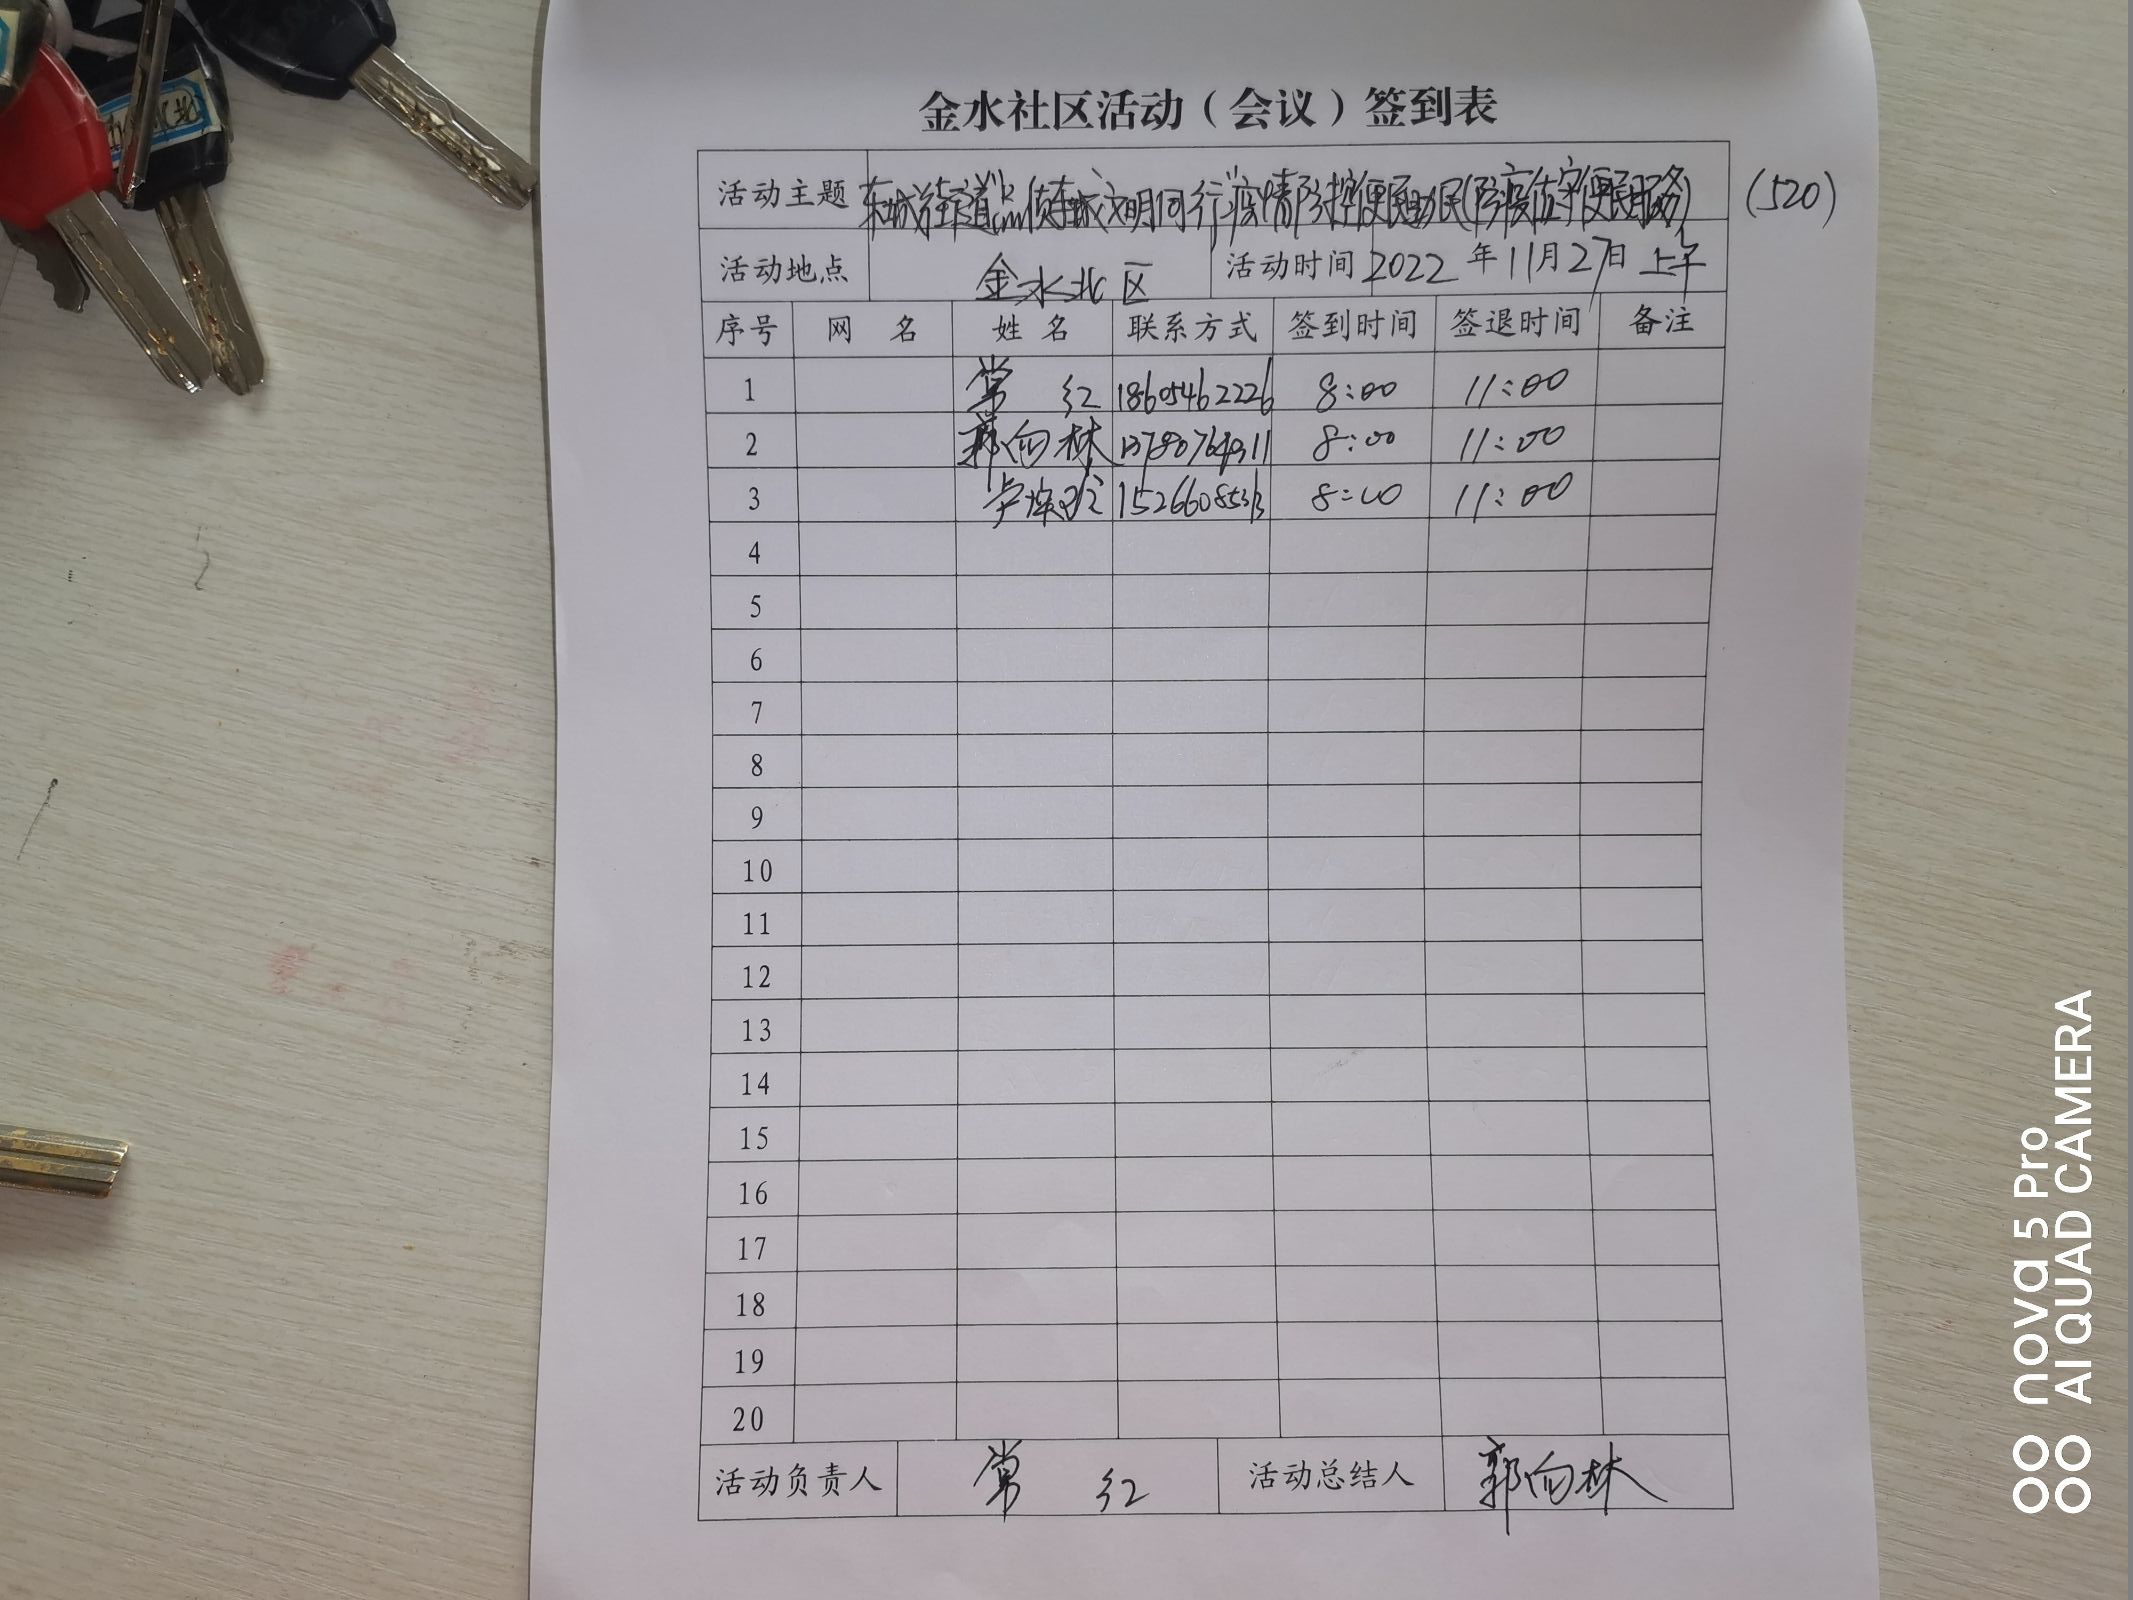 金水社区活动（会议）签到表
活动主题 东城街道 东城 文明同行"疫情防控便民助民(防疫值守便民服务) (520)
活动地点 金水北区 活动时间 2022年11月27日上午
序号 网 名 姓 名 联系方式 签到时间 签退时间 备注
1 常 红 18605462226 8:00 11:00
2 郭向林 8:00 11:00
3 8:00 11:00
4
5
6
7
8
9
10
11
12
13
14
15
16
17
18
19
20
活动负责人 常 红 活动总结人 郭向林
nova 5 Pro
AI QUAD CAMERA